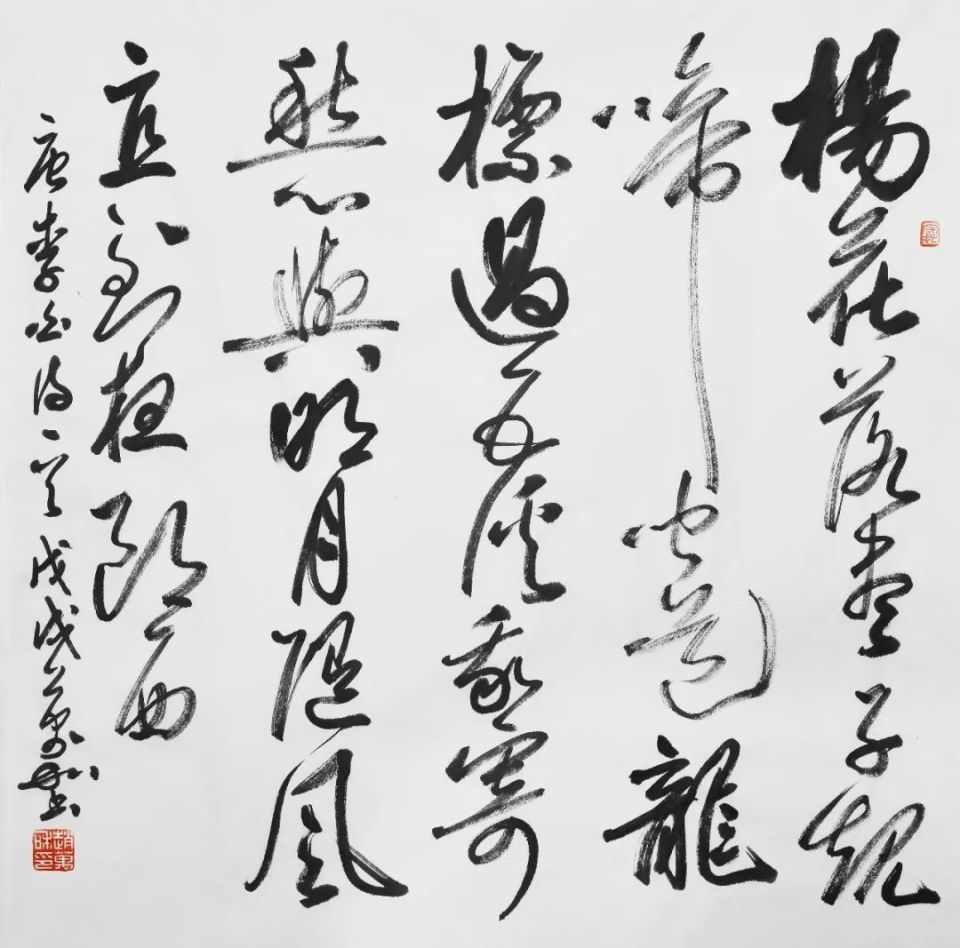 楊花落盡子規
啼聞道龍
標過五溪我寄
愁心與明月隨風
直到夜郎西
唐李白詩一首戊戌萬和書
趙萬和印